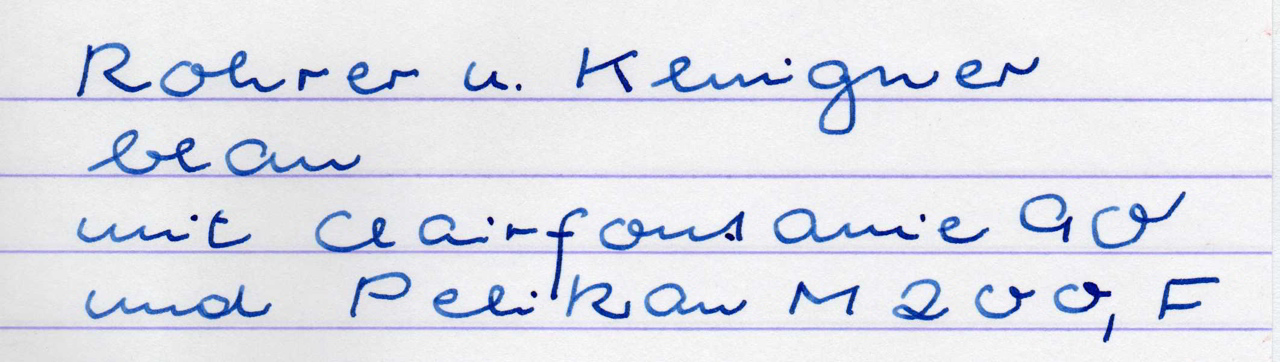 Rohrer u. Klingner
blau
mit Clairfontaine 90
und Pelikan M200, F